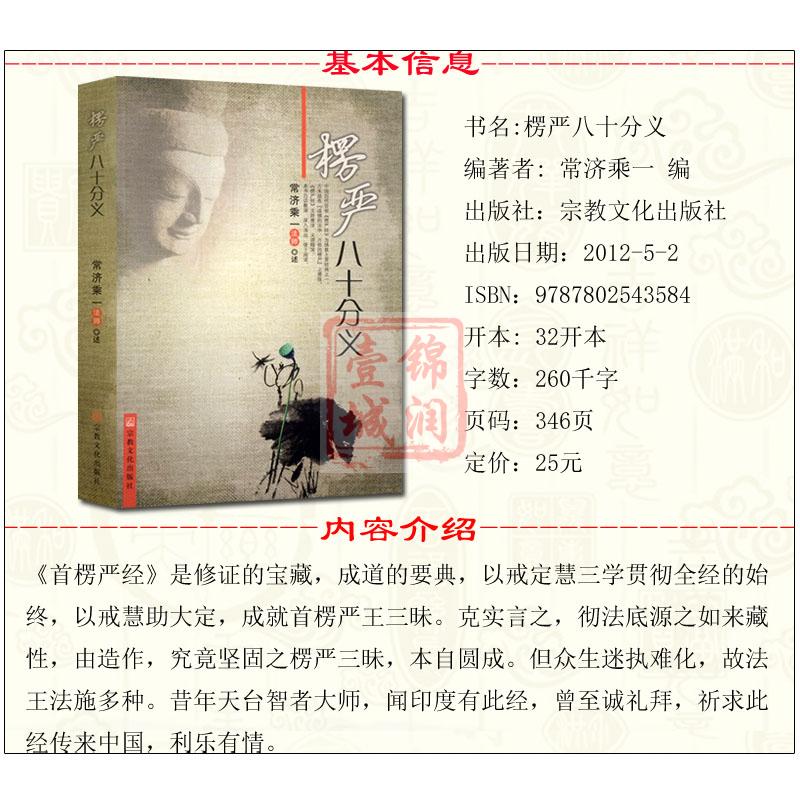 基本信息
楞严
八十分义
常济乘一法师◎述
宗教文化出版社
楞严
八十分义
常济乘一法师◎述
宗教文化出版社
锦润
壹城
书名:楞严八十分义
编著者: 常济乘一 编
出版社: 宗教文化出版社
出版日期: 2012-5-2
ISBN: 9787802543584
开本: 32开本
字数: 260千字
页码: 346页
定价: 25元
内容介绍
《首楞严经》是修证的宝藏，成道的要典，以戒定慧三学贯彻全经的始
终，以戒慧助大定，成就首楞严王三昧。克实言之，彻法底源之如来藏
性，由造作，究竟坚固之楞严三昧，本自圆成。但众生迷执难化，故法
王法施多种。昔年天台智者大师，闻印度有此经，曾至诚礼拜，祈求此
经传来中国，利乐有情。